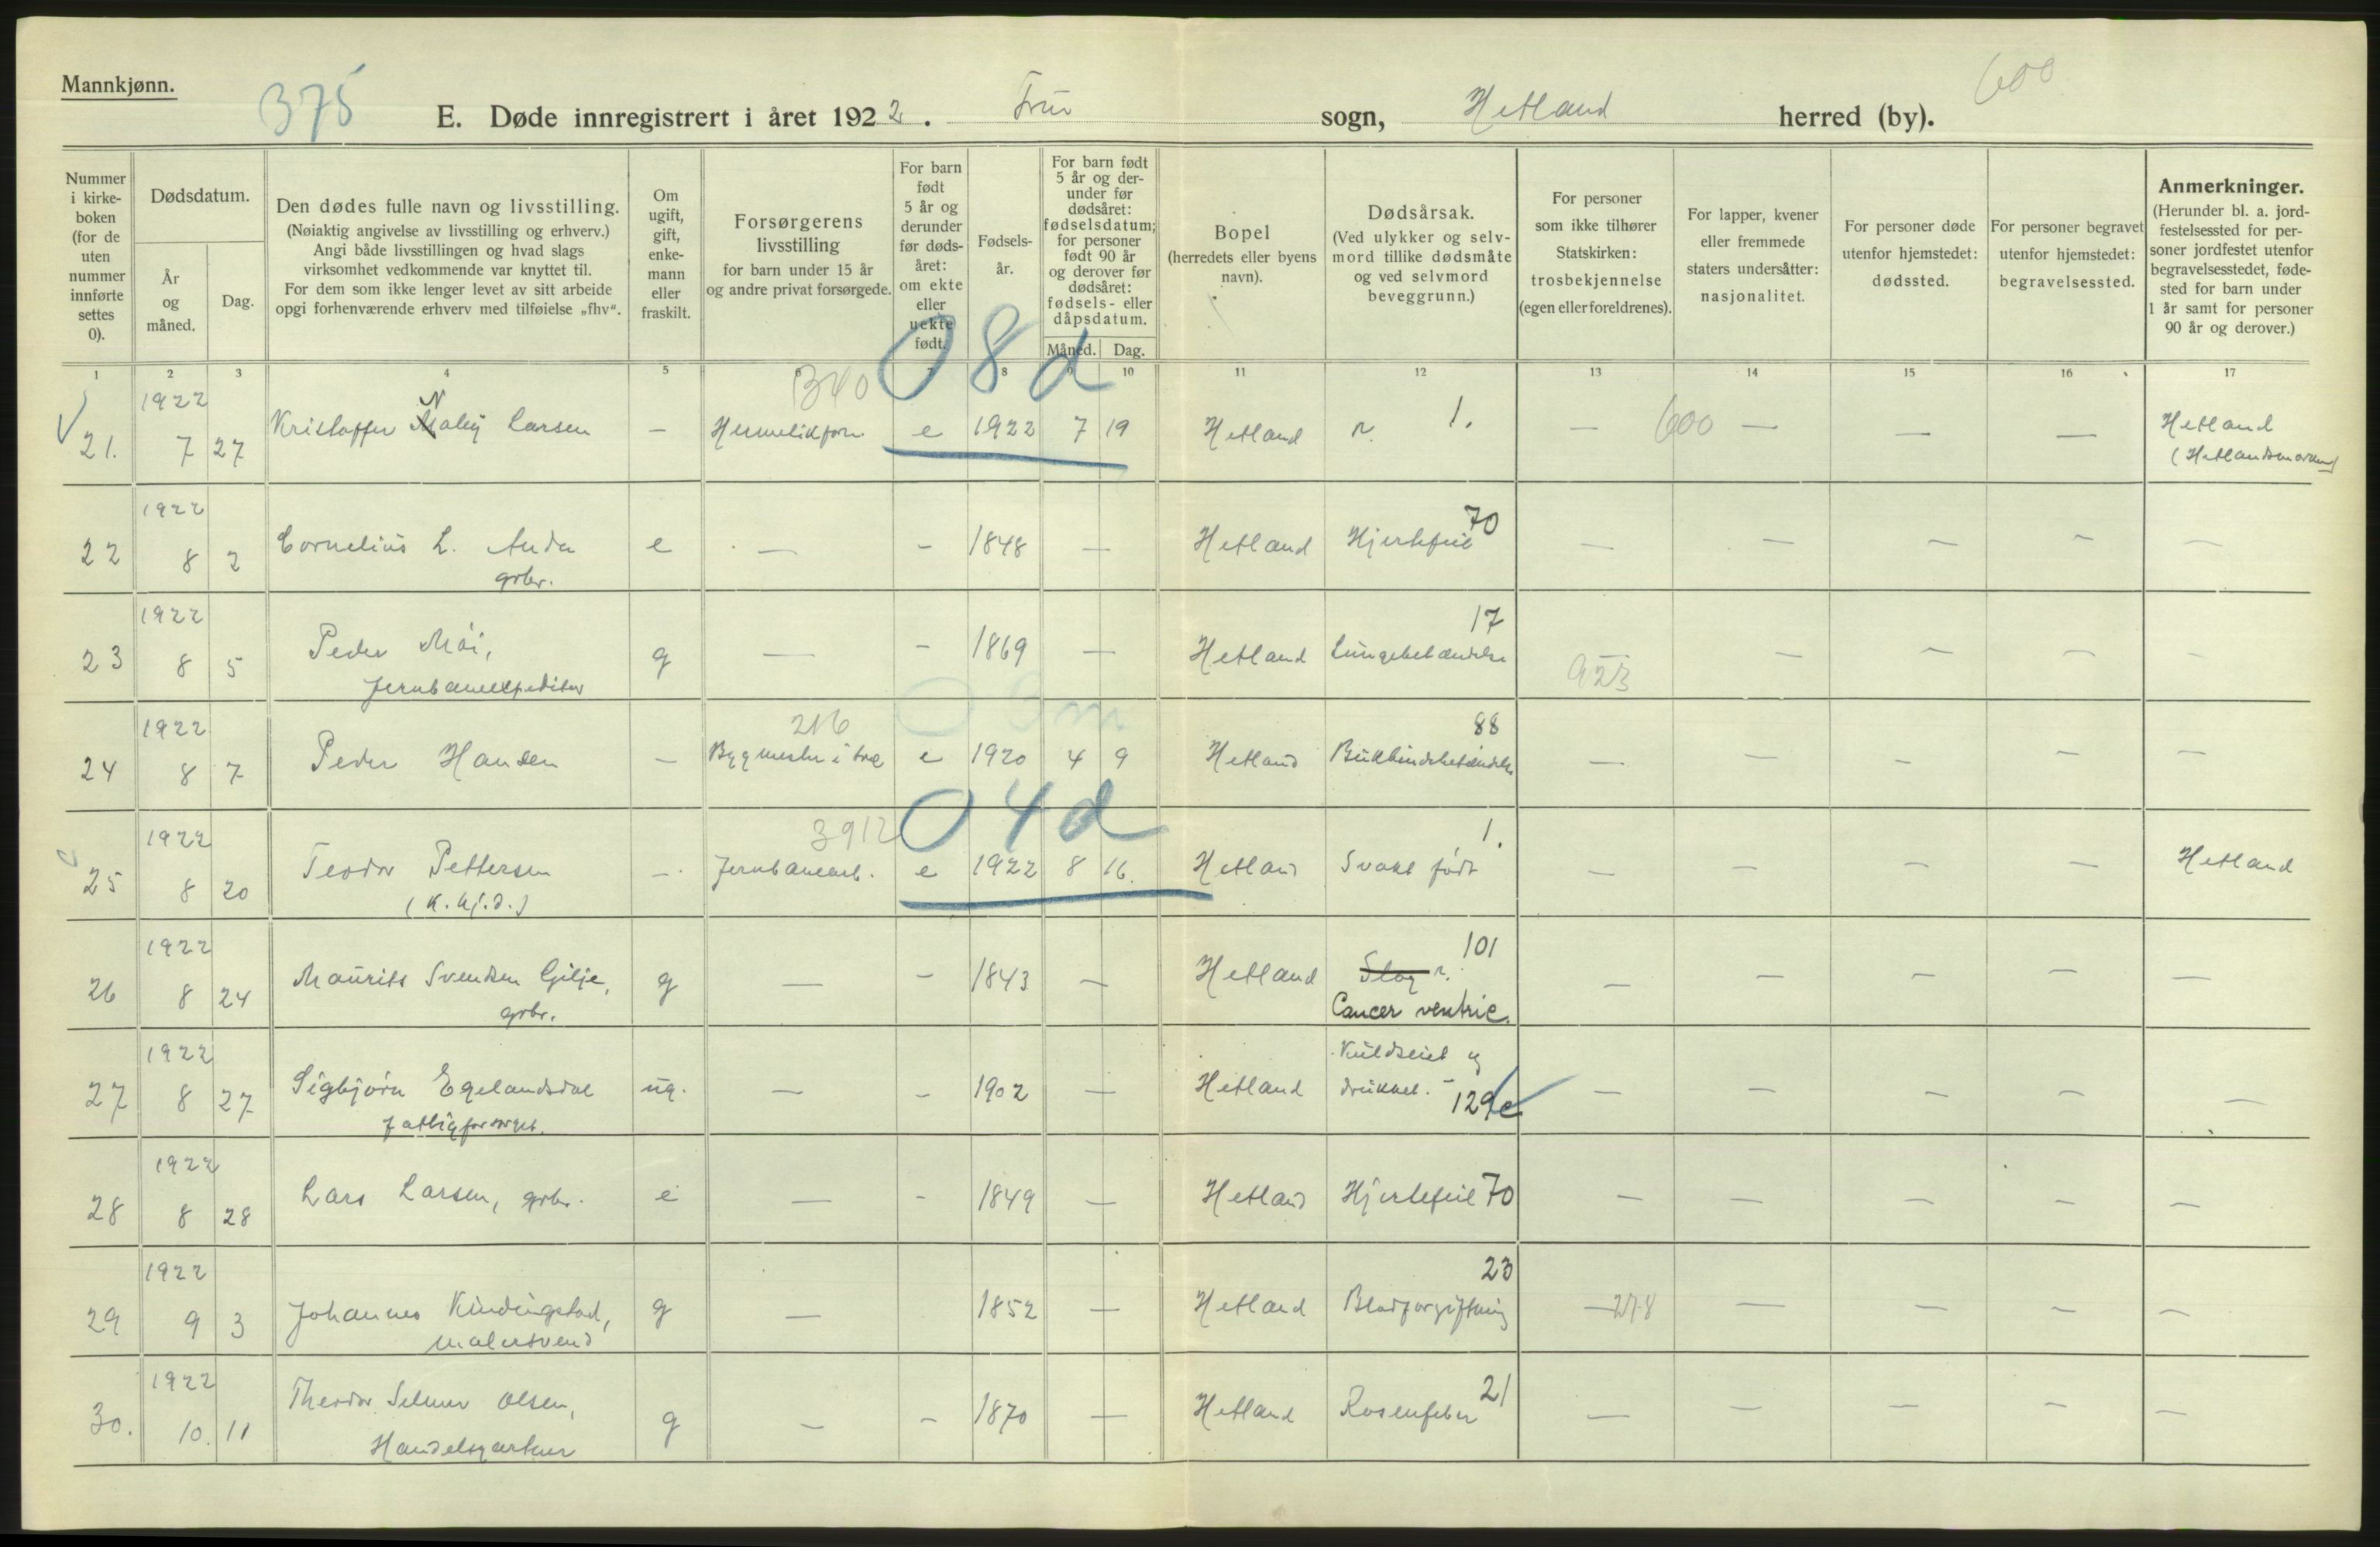 Mannkjønn.
375
600
E. Døde innregistrert i året 1922. Frue sogn, Hetland herred (by).
Nummer i kirke-boken (for de uten nummer innførte settes 0).
Dødsdatum.
År og måned.
Dag.
Den dødes fulle navn og livsstilling.
(Nøiaktig angivelse av livsstilling og erhverv.)
Angi både livsstillingen og hvad slags
virksomhet vedkommende var knyttet til.
For dem som ikke lenger levet av sitt arbeide
opgi forhenværende erhverv med tilføielse „fhv“.
Om ugift, gift, enke-mann eller fraskilt.
Forsørgerens livsstilling
for barn under 15 år
og andre privat forsørgede.
For barn født 5 år og derunder før døds-året: om ekte eller uekte født.
Fødsels-år.
For barn født 5 år og der-under før dødsåret: fødselsdatum; for personer født 90 år og derover før dødsåret: fødsels- eller dåpsdatum.
Måned. Dag.
Bopel
(herredets eller byens navn).
Dødsårsak.
(Ved ulykker og selv-mord tillike dødsmåte og ved selvmord beveggrunn.)
For personer som ikke tilhører Statskirken: trosbekjennelse (egen eller foreldrenes).
For lapper, kvener eller fremmede staters undersåtter: nasjonalitet.
For personer døde utenfor hjemstedet: dødssted.
For personer begravet utenfor hjemstedet: begravelsessted.
Anmerkninger.
(Herunder bl. a. jord-festelsessted for per-soner jordfestet utenfor begravelsesstedet, føde-sted for barn under 1 år samt for personer 90 år og derover.)
1 2 3 4 5 6 7 8 9 10 11 12 13 14 15 16 17
340 08d
21. 1922 7 27 Kristoffer Naley Larsen — e 1922 7 19 Hetland n. 1. — 600 — — — Hetland
(Hetlandsmarken)
22 1922 8 2 Cornelius L. Auda e — - 1848 — Hetland Hjertefeil 70 — — — — —
grbr.
23 1922 8 5 Peder Moi, g — - 1869 — Hetland Lungebetændelse 17 — 923 — — — —
Jernbaneexpeditør
03m
24 1922 8 7 Peder Hansen — 216 Bygmester i træ e 1920 4 9 Hetland Bukhindebetændelse 88 — — — — —
3912 04d
25 1922 8 20 Teodor Pettersen — Jernbanearb. e 1922 8 16. Hetland Svakt født 1. — — — — Hetland
(K. hj. d.)
26 1922 8 24 Maurits Svendsen Gilje, g — - 1843 — Hetland Slag n. 101 — — — — —
grbr. Cancer ventric.
27 1922 8 27 Sigbjørn Egelandsdal ug. — - 1902 — Hetland Kuldseilt og
fattigforsørget. drukket. - 129e — — — — —
28 1922 8 28 Lars Larsen, grbr. e — - 1849 — Hetland Hjertefeil 70 — — — — —
29 1922 9 3 Johannes Kindingstad, g — 1852 — Hetland Blodforgiftning 23 — 278 — — — —
malersvend
30. 1922 10. 11 Theodor Selmer Olsen, g — - 1870 — Hetland Rosenfeber 21 — — — — —
Handelsgartner